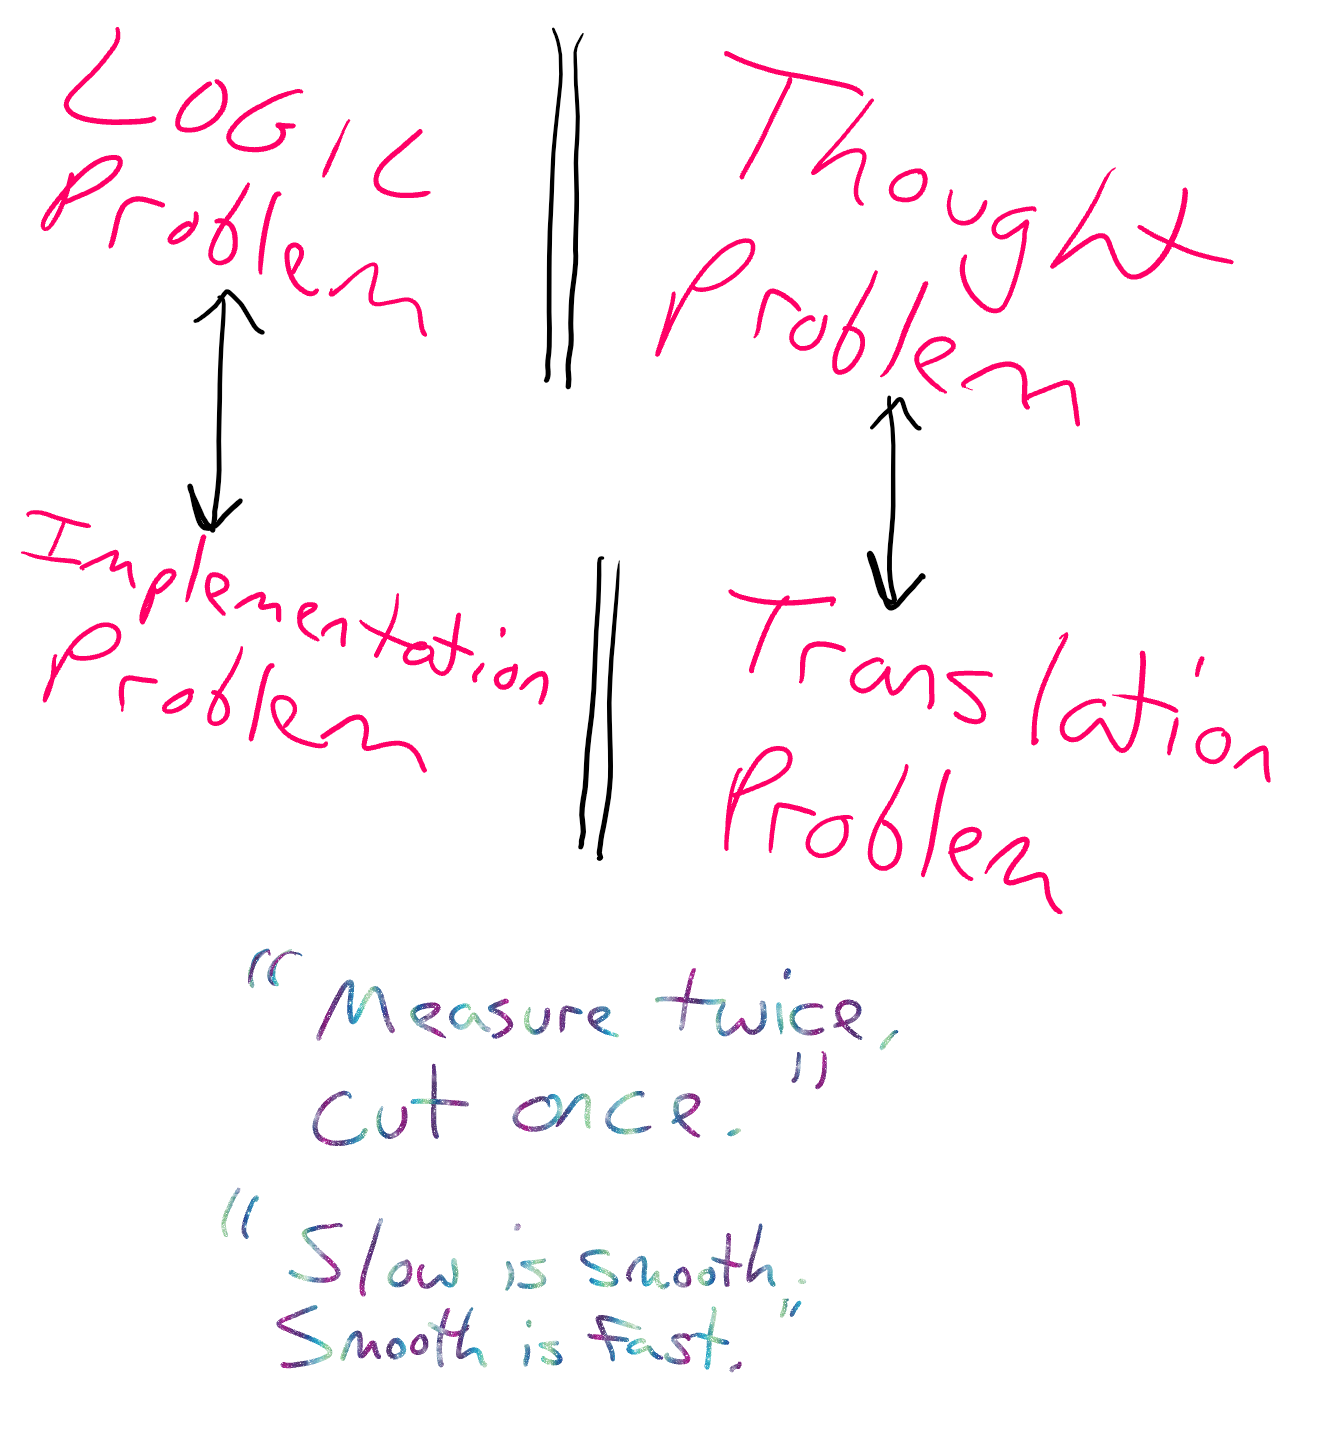 LOGIC
Problem
Thought
Problem
Implementation
Problem
Translation
Problem
"Measure twice,
cut once."
"Slow is smooth.
Smooth is fast."